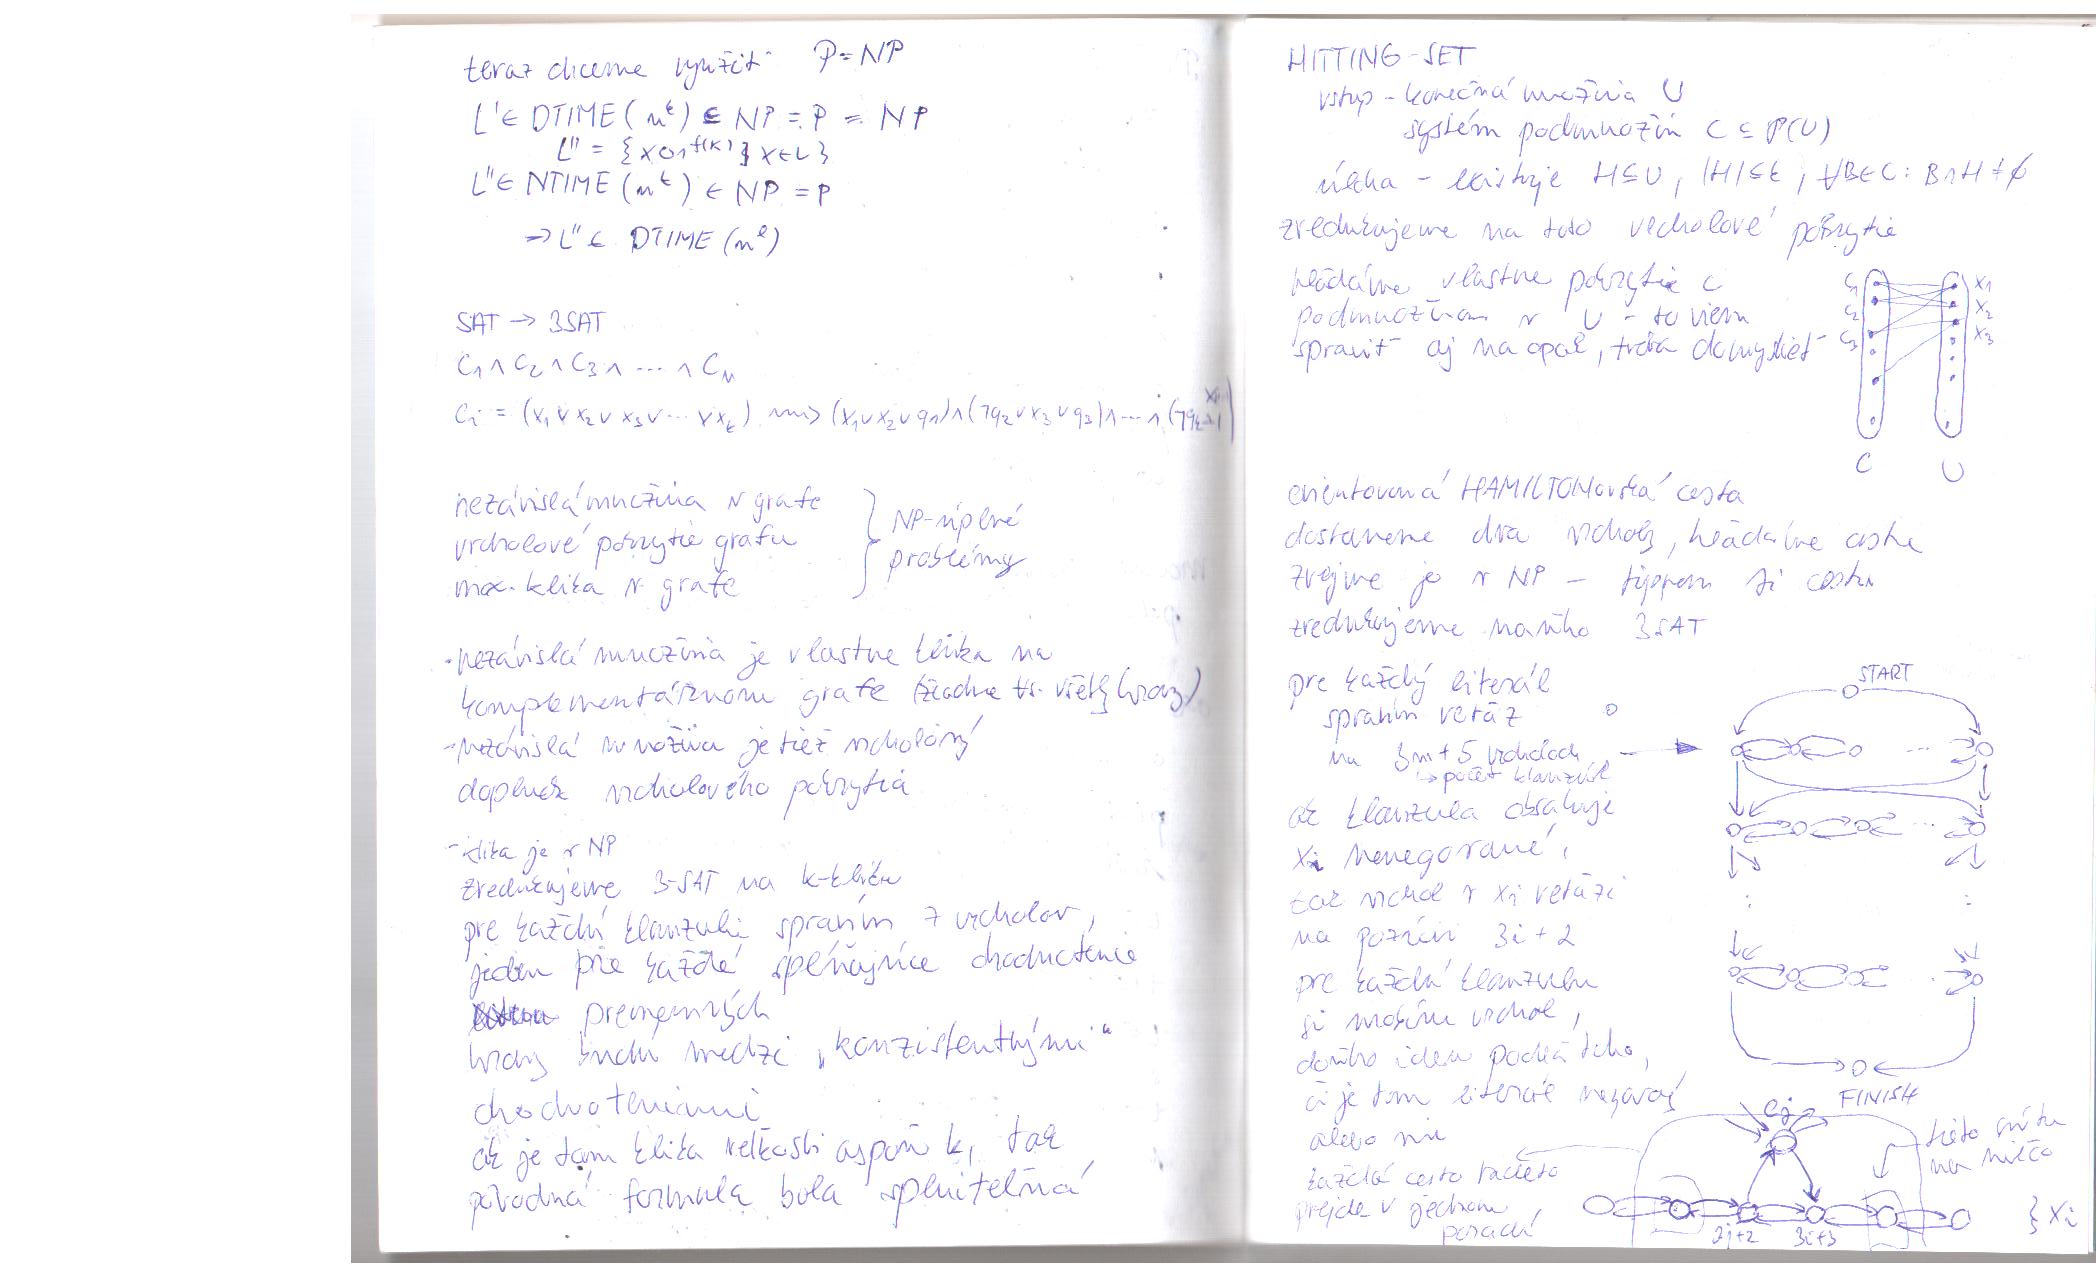 teraz chceme využiť P=NP
L' ∈ DTIME(n^k) ⊆ NP = P = NP
L'' = {x01^f(k) } x∈L}
L'' ∈ NTIME(n^k) ∈ NP = P
→ L'' ∈ DTIME(n^l)
SAT → 3SAT
C₁ ∧ C₂ ∧ C₃ ∧ ... ∧ C_N
C_i = (x₁ ∨ x₂ ∨ x₃ ∨ ... ∨ x_k) ~~> (x₁ ∨ x₂ ∨ q₁) ∧ (¬q₂ ∨ x₃ ∨ q₃) ∧ ... ∧ (¬q
nezávislá množina v grafe
vrcholové pokrytie grafu
max. klika v grafe
NP-úplné
problémy
- nezávislá množina je vlastne klika na
komplementárnom grafe (žiadne vs. všetky hrany)
- nezávislá množina je tiež vrcholový
doplnok vrcholového pokrytia
- klika je v NP
zredukujeme 3-SAT na k-kliku
pre každú klauzulu spravím 7 vrcholov,
jeden pre každé spĺňajúce ohodnotenie
premenných
hrany budú medzi „konzistentnými"
ohodnoteniami
ak je tam klika veľkosti aspoň k, tak
pôvodná formula bola splniteľná
HITTING-SET
vstup - konečná množina U
systém podmnožín C ⊆ P(U)
otázka - existuje H⊆U, |H|≤k, ∀B∈C: B∩H≠∅
zredukujeme na toto vrcholové pokrytie
hľadáme vlastne pokrytie C
podmnožinou v U - to viem
spraviť aj naopak, treba domyslieť
C₁
C₂
C₃
x₁
x₂
x₃
C
U
orientovaná HAMILTONovská cesta
dostaneme dva vrcholy, hľadáme cestu
zrejme je v NP - tipnem si cestu
zredukujeme naňho 3SAT
pre každý literál
spravím reťaz
na 3m+5 vrcholoch
↳ počet klauzúl
ak klauzula obsahuje
x_i nenegované,
tak vrchol v x_i reťazi
na pozícii 3i+2
pre každú klauzulu
si možím vrchol,
doňho idem podľa toho,
či je tam literál negovaný
alebo nie
každá cesta takáto
prejde v jednom
poradí
START
FINISH
C_j
tieto sú tu
na niečo
3j+2
3i+3
} x_i